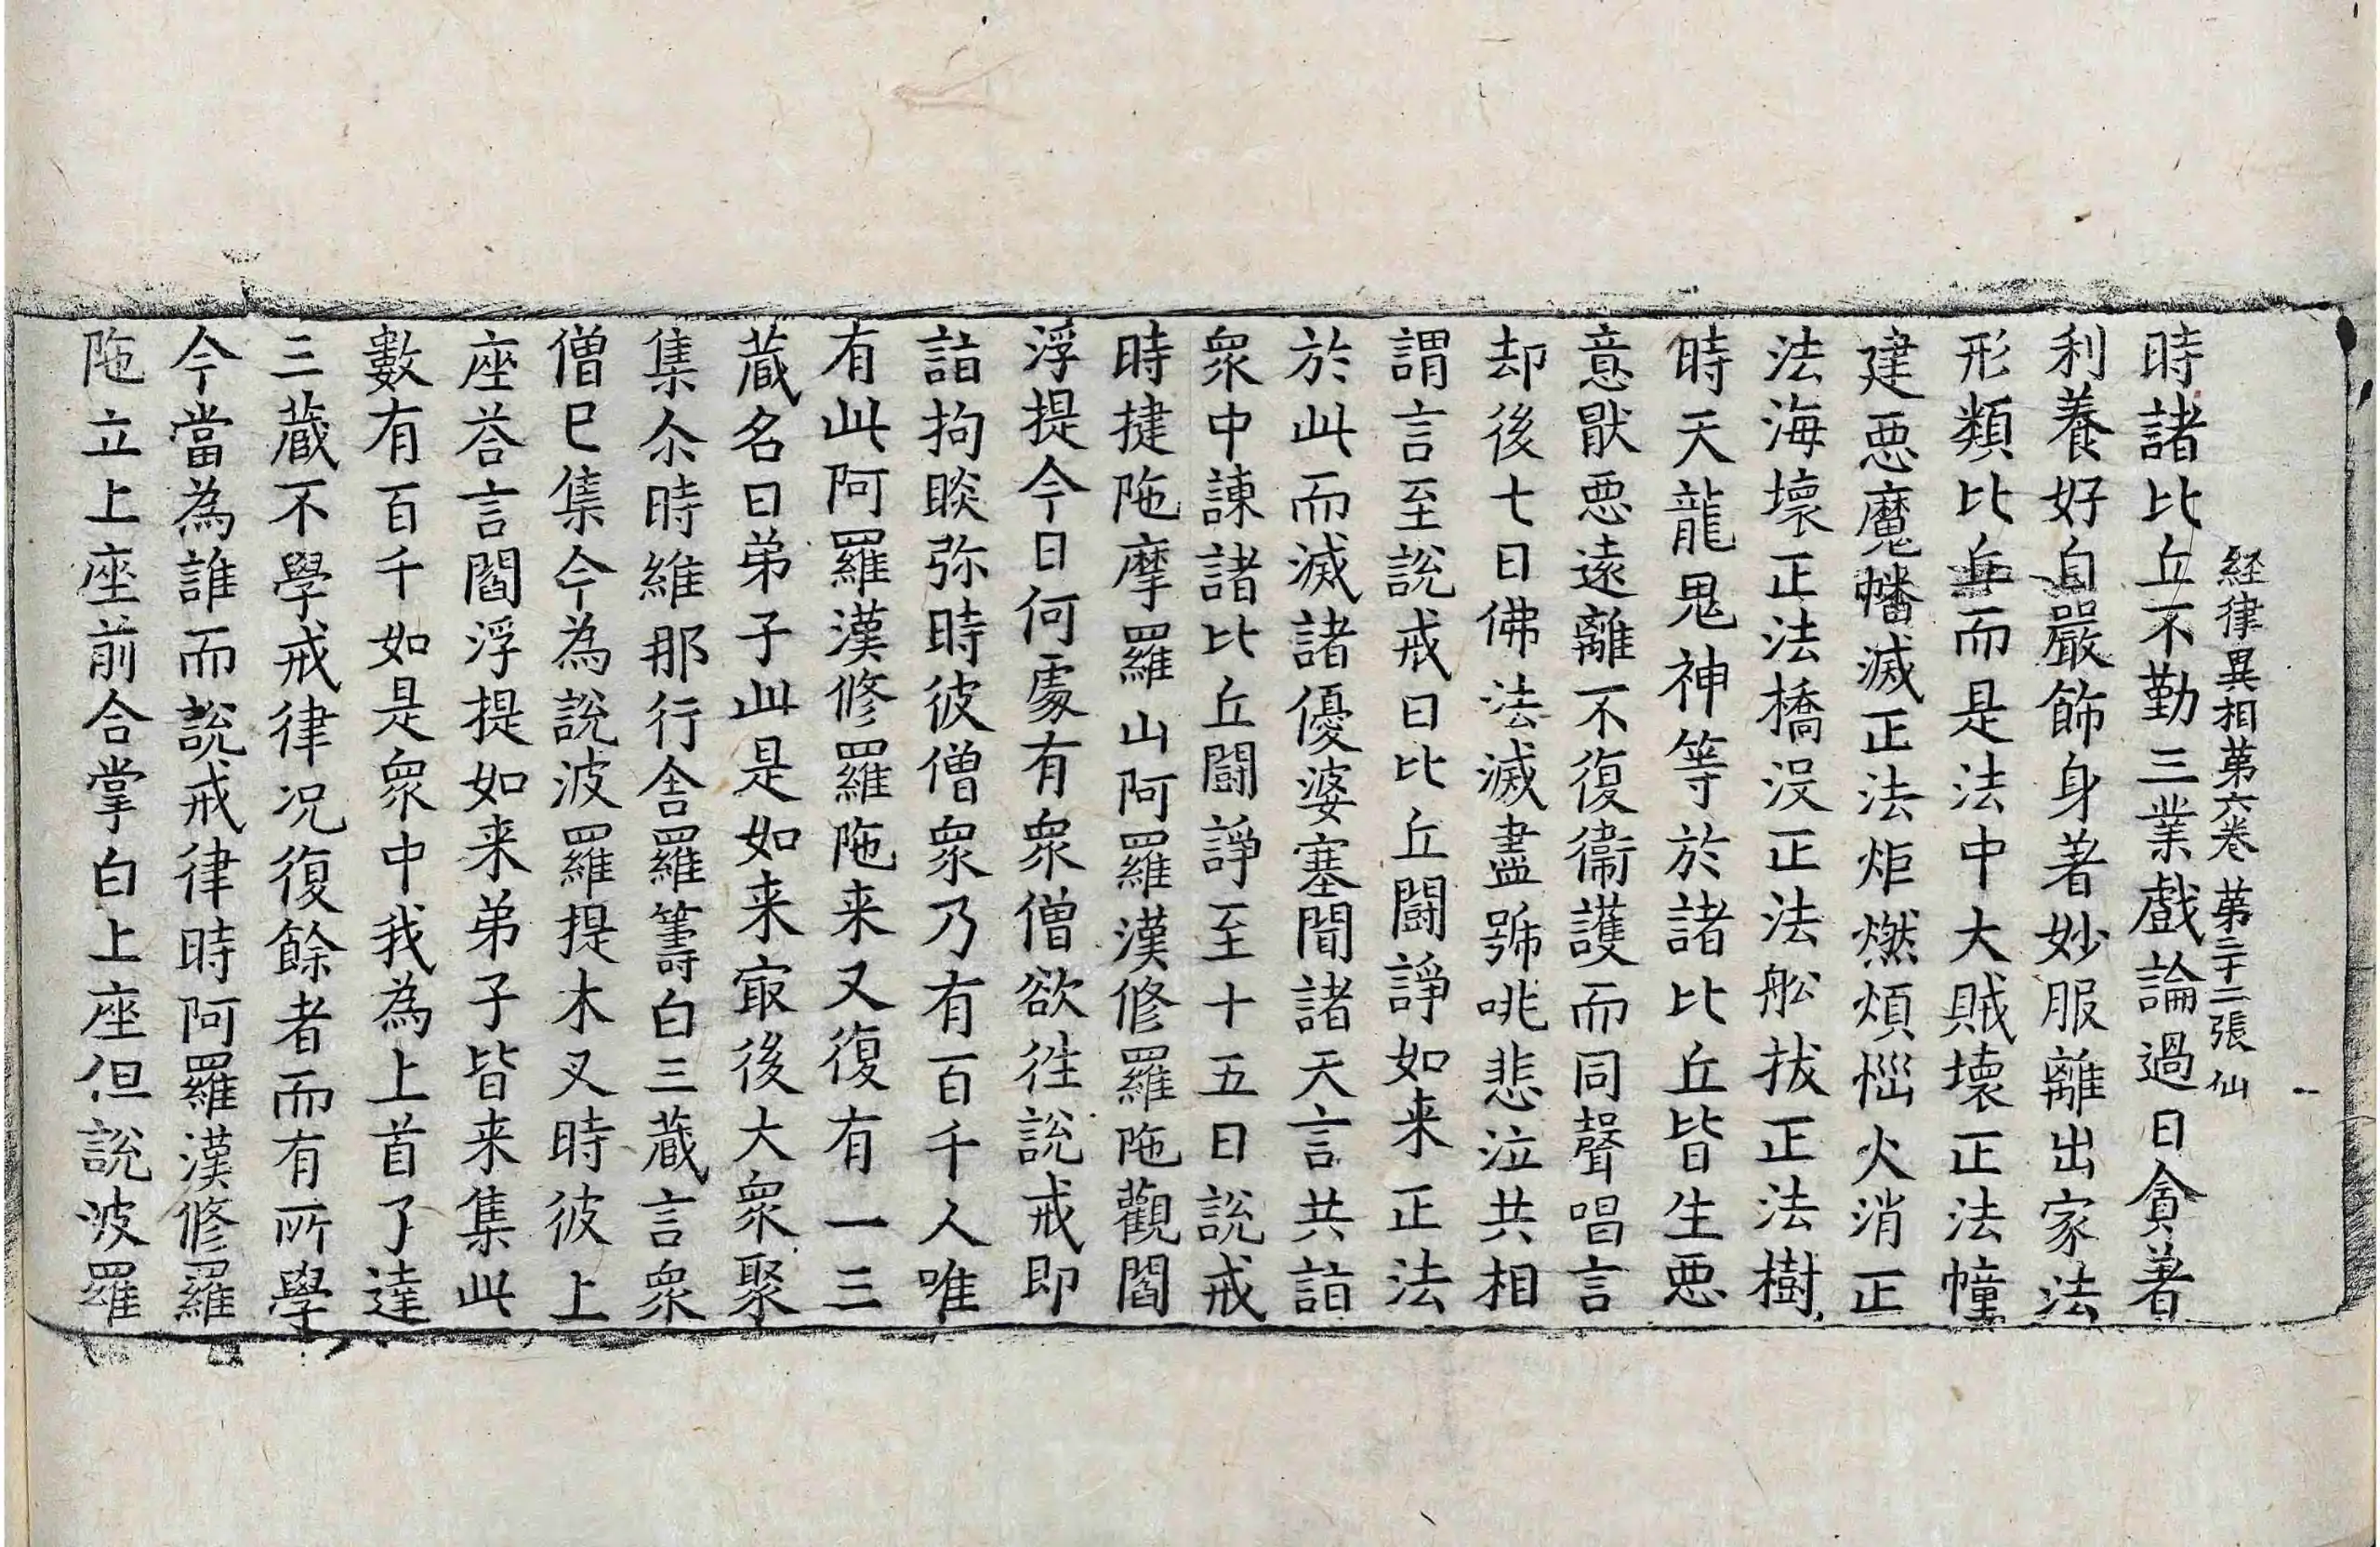 経律異相第六卷 第二十二張 仙
時諸比丘不勤三業戲論過日貪著
利養好自嚴飾身著妙服離出家法
形類比丘而是法中大賊壞正法幢
建惡魔幡滅正法炬燃煩惱火消正
法海壞正法橋没正法舩拔正法樹
時天龍鬼神等於諸比丘皆生惡
意猒惡遠離不復衞護而同聲唱言
却後七日佛法滅盡號咷悲泣共相
謂言至說戒日比丘鬪諍如来正法
於此而滅諸優婆塞聞諸天言共詣
衆中諫諸比丘鬪諍至十五日說戒
時揵陁摩羅山阿羅漢修羅陁觀閻
浮提今日何處有衆僧欲徃說戒即
詣拘睒弥時彼僧衆乃有百千人唯
有此阿羅漢修羅陁来又復有一三
蔵名曰弟子此是如来㝡後大衆聚
集尒時維那行舎羅籌白三蔵言衆
僧已集今為說波羅提木叉時彼上
座荅言閻浮提如来弟子皆来集此
數有百千如是衆中我為上首了達
三蔵不學戒律况復餘者而有所學
今當為誰而說戒律時阿羅漢修羅
陁立上座前合掌白上座但說波羅